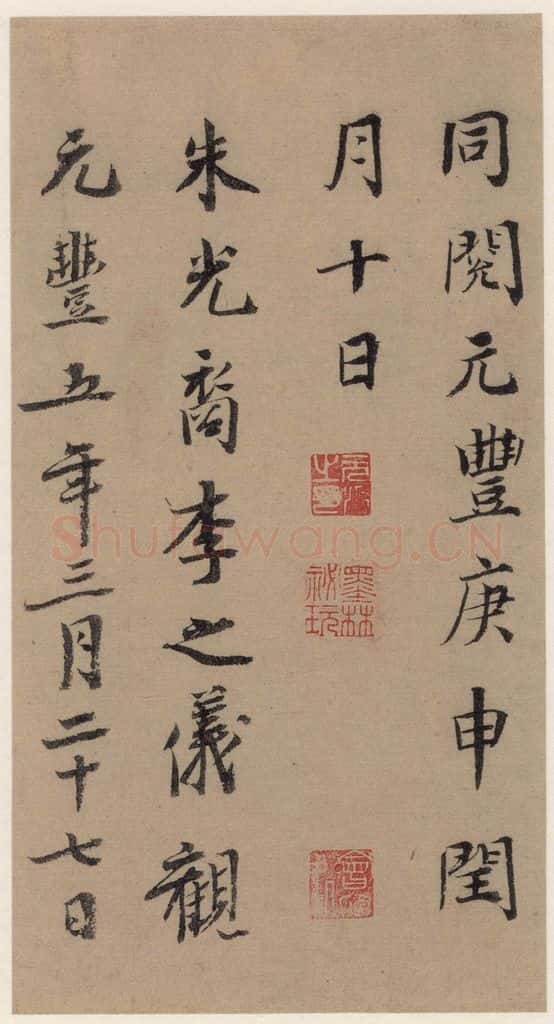 同閱元豐庚申閏
月十日
朱光裔李之儀觀
元豐五年三月二十七日
墨林祕玩
Shufawang.CN